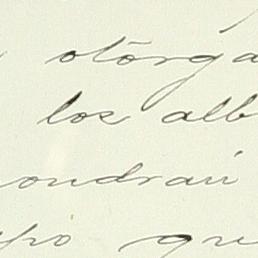 otorga
los alb
ondrán
po que